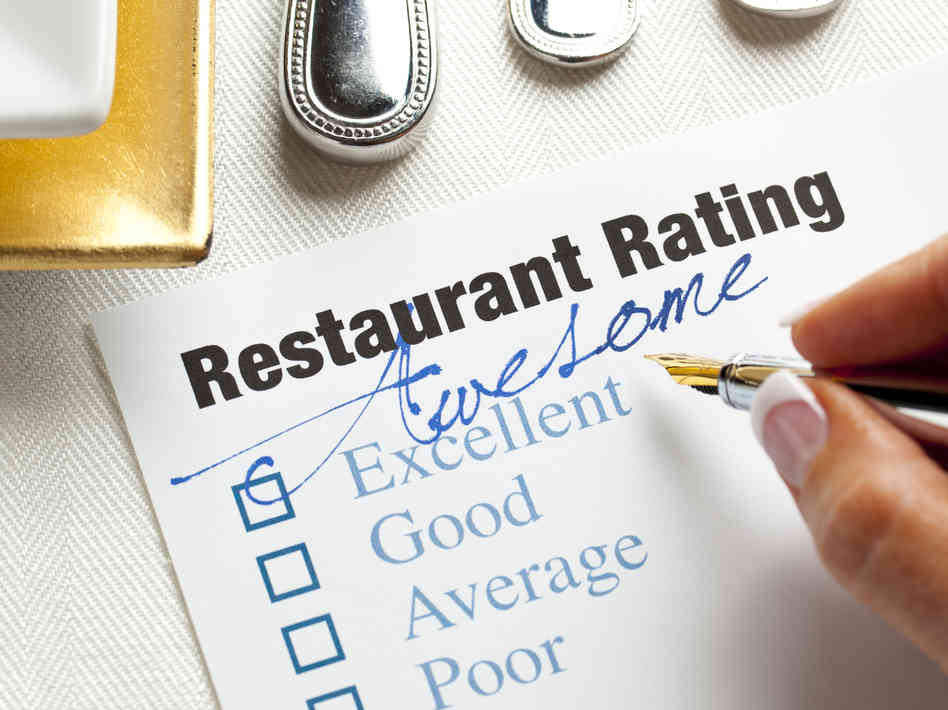 Restaurant Rating
Awesome
Excellent
Good
Average
Poor